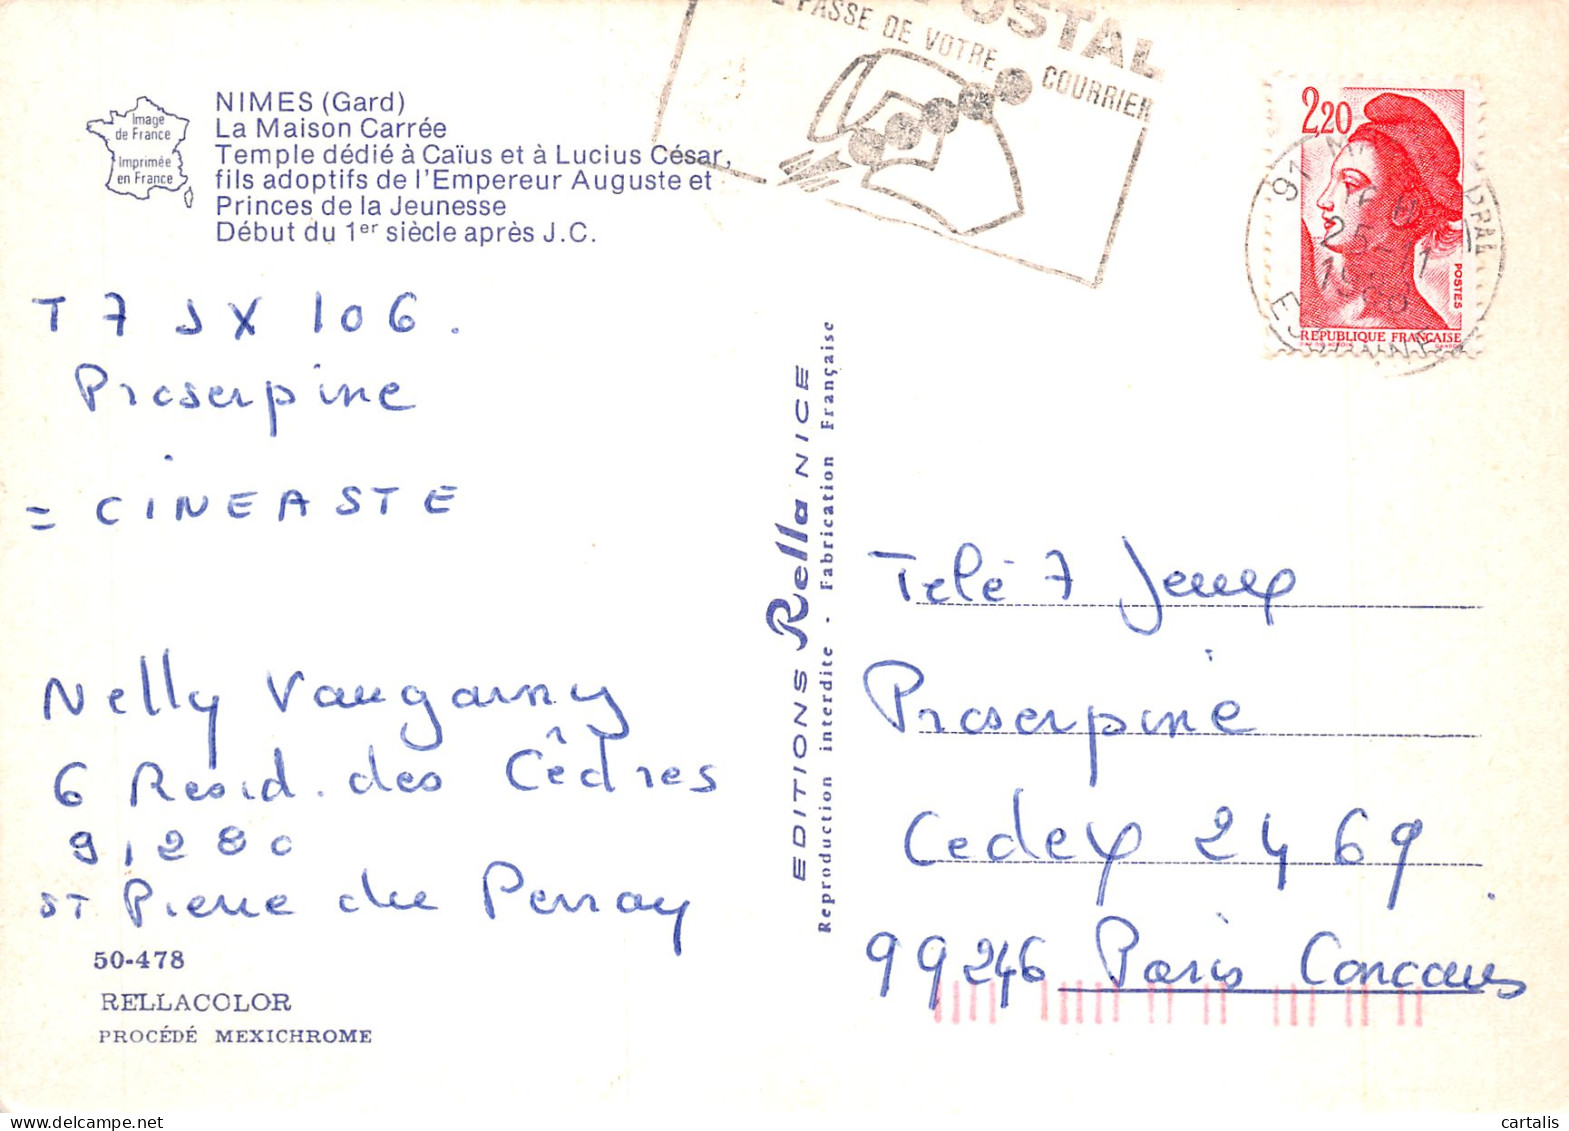 POSTAL
PASSE DE VOTRE COURRIER
Image
de France
Imprimée
en France
NIMES (Gard)
La Maison Carrée
Temple dédié à Caïus et à Lucius César,
fils adoptifs de l'Empereur Auguste et
Princes de la Jeunesse
Début du 1er siècle après J.C.
2,20
POSTES
REPUBLIQUE FRANÇAISE
91
25-11
T 7 J X 106.
Proserpine
= CINEASTE
Nelly Vaugarny
6 Resid. des Cèdres
91280
ST Pierre du Perray
50-478
RELLACOLOR
PROCÉDÉ MEXICHROME
EDITIONS Rella NICE
Reproduction interdite - Fabrication Française
Telé 7 Jeux
Proserpine
Cedex 2469
99246 Paris Concours
cartalis